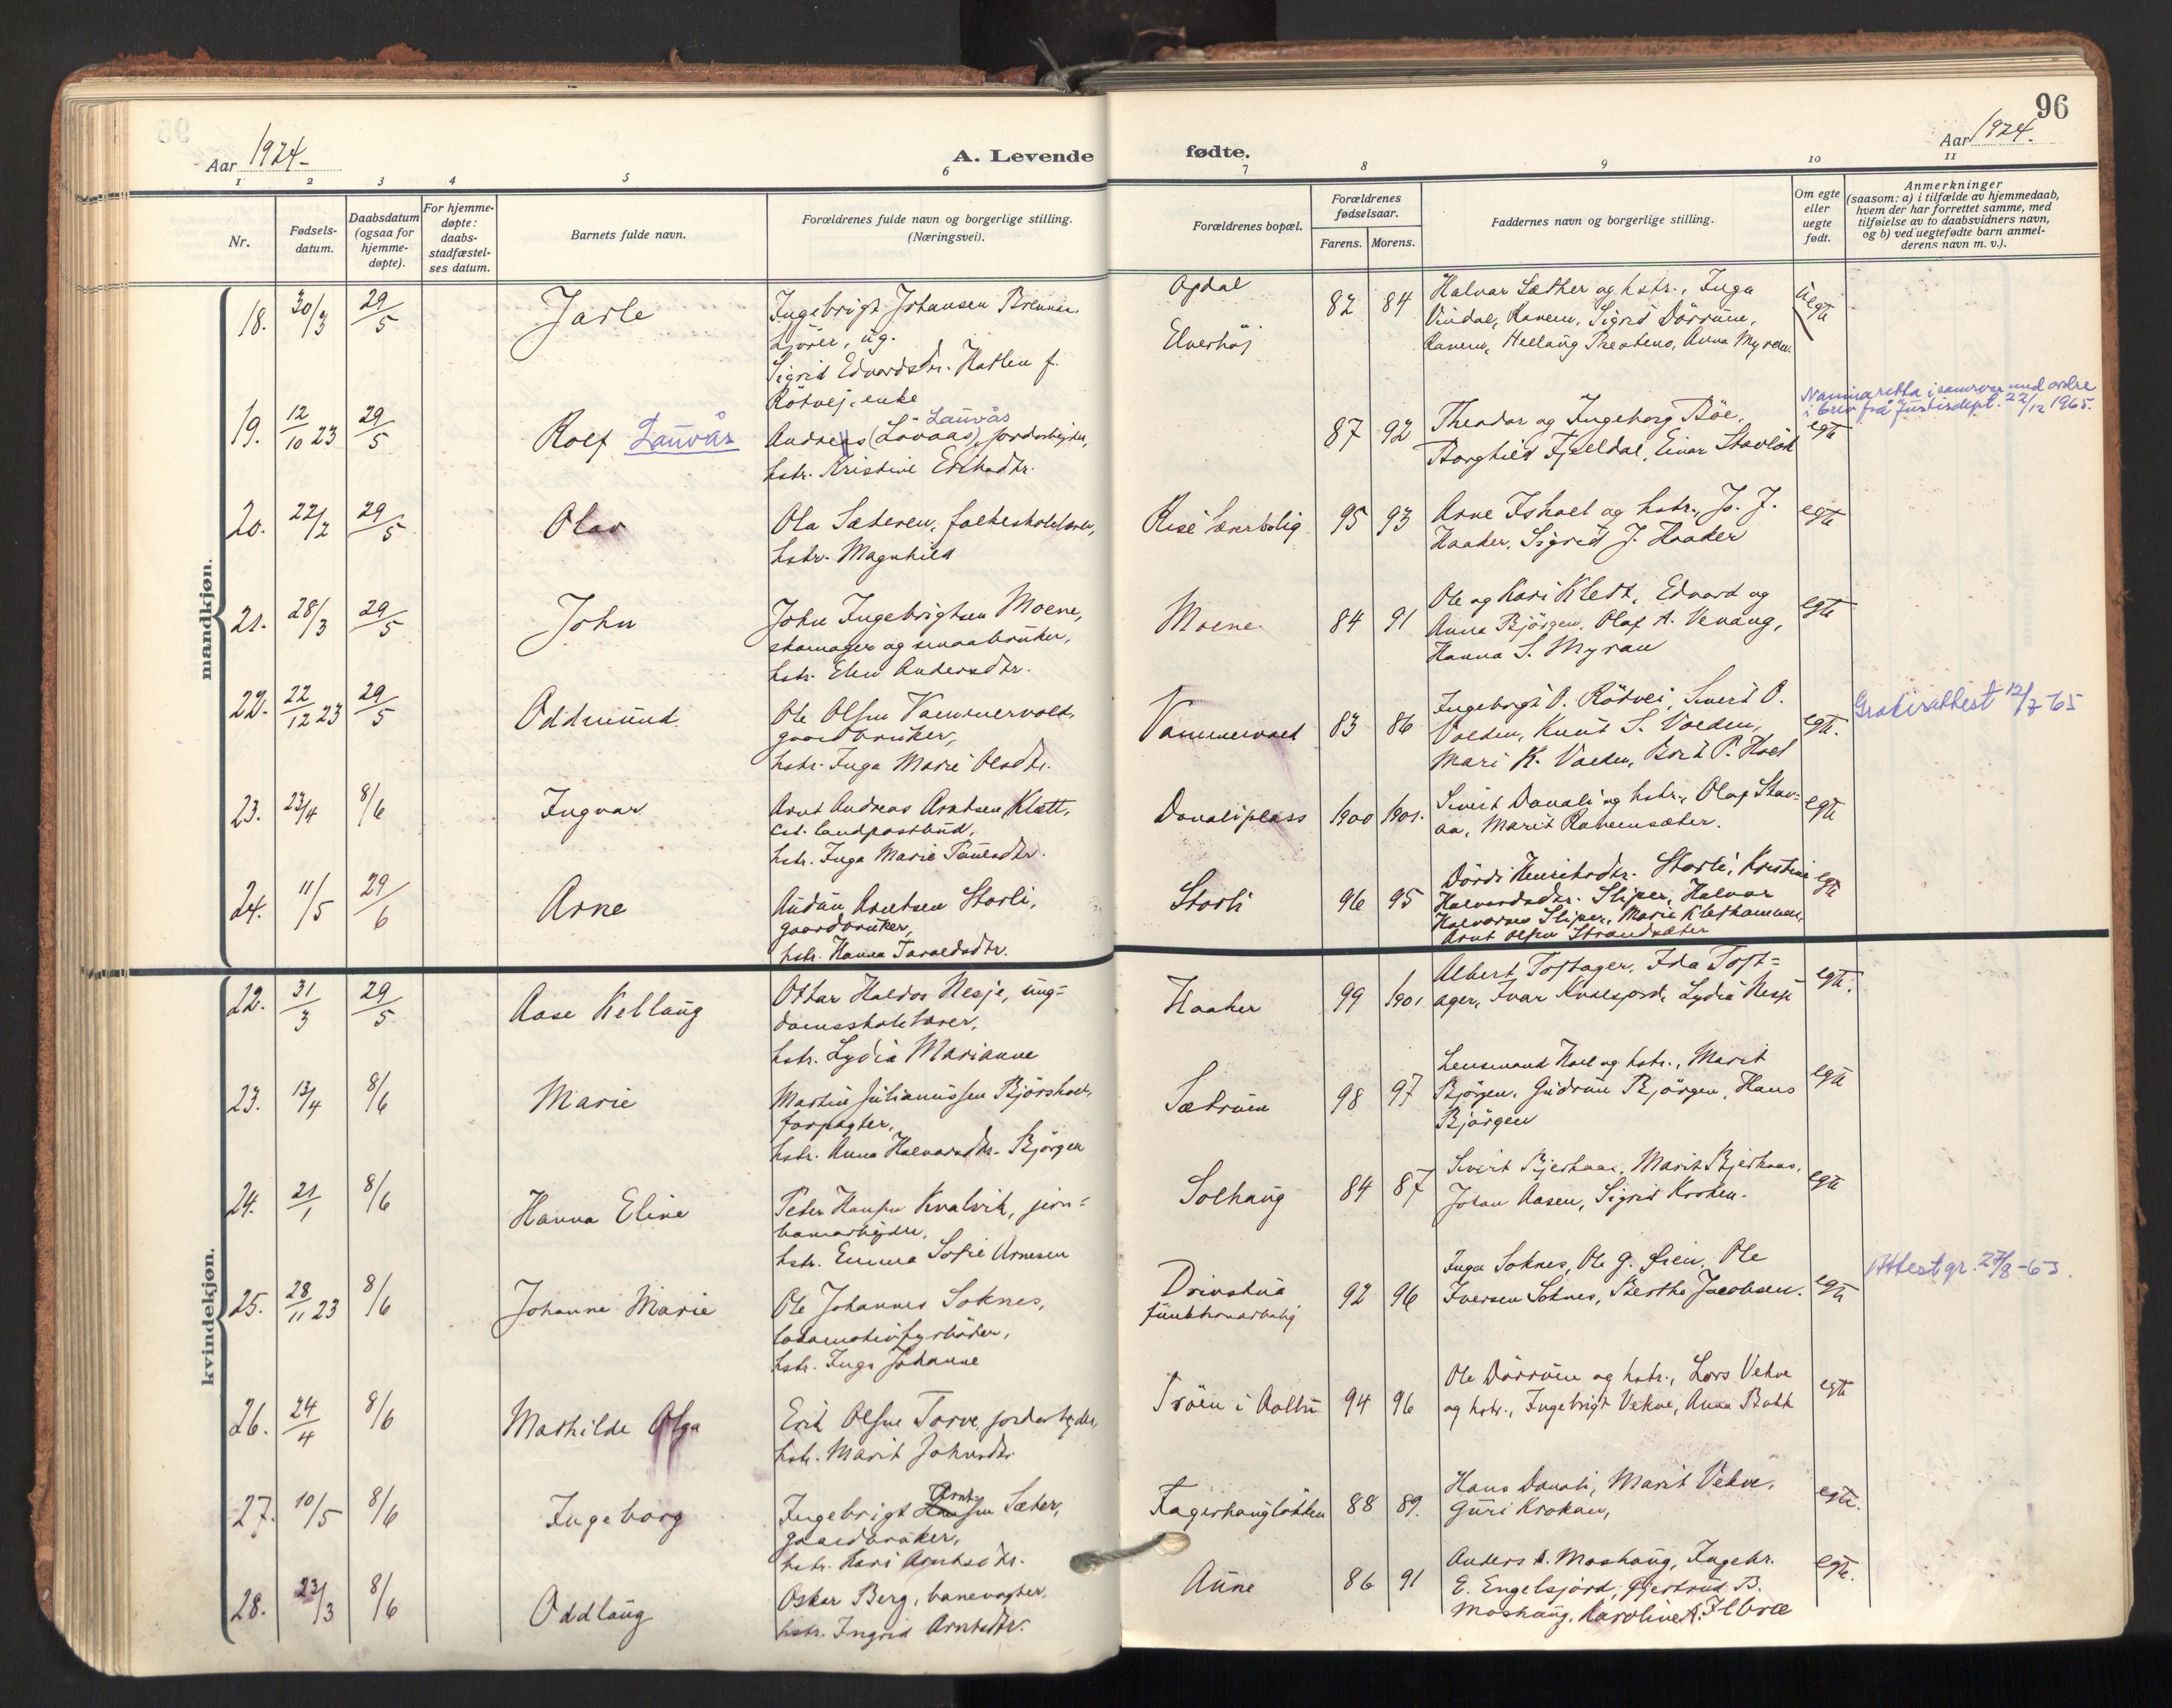 96
Aar 1924.
A. Levende fødte.
Aar 1924.
1 2 3 4 5 6 7 8 9 10 11
Nr.
Fødsels-
datum.
Daabsdatum
(ogsaa for
hjemme-
døpte).
For hjemme-
døpte:
daabs-
stadfæstel-
ses datum.
Barnets fulde navn.
Forældrenes fulde navn og borgerlige stilling.
(Næringsvei).
Forældrenes bopæl.
Forældrenes
fødselsaar.
Farens. Morens.
Faddernes navn og borgerlige stilling.
Om egte
eller
uegte
født.
Anmerkninger
(saasom: a) i tilfælde av hjemmedaab,
hvem der har forrettet samme, med
tilføielse av to daabsvidners navn,
og b) ved uegtefødte barn anmel-
derens navn m. v.).
mandkjøn.
18. 30/3 29/5 Jarle
Ingebrigt Johansen Brennan,
ug.
Sigrid Edvardsdtr. Hatlen f.
Rötvej, enke
Opdal
Elverhöj
82 84
Halvar Sæther og hstr., Inga
Vindal, Ranem, Sigrid Dörrum,
Ranem, Anna Myren.
uegte
19. 12/10 23 29/5 Rolf Lauvås
Lauvås
Andreas (Lövaas), jordarbejder,
hstr. Kristine
87 92
Theodor og Ingeborg Böe,
Borghild Fjelldal, Einar
egte
Namna retta i samsvar med ordre
i brev frå Justisdept. 22/12 1965.
20. 22/2 29/5 Olav
Ola Sæteren, folkeskolelærer,
hstr. Magnhild
Rise lærerbolig
95 93
Arne Ishoel og hstr., Jo. J.
Haaker, Sigrid J. Haaker
egte
21. 28/3 29/5 John
John Ingebrigtsen Moene,
skomager og smaabruker,
hstr. Elen Andersdtr.
Moene
84 91
Ole og Kari Klett, Edvard og
Anna Bjørgen, Olaf A. Venang,
Hanna S. Myran
egte
22. 22/12 23 29/5 Oddmund
Ole Olsen Vammervold,
gaardbruker,
hstr. Inga Marie Olsdtr.
Vammervold
83 86
Ingeborg O. Rötvei, Sivert O.
Volden, Knut S. Volden,
Mari K. Volden, Berit P. Hoel
egte.
Gratisattest 12/7 65
23. 23/4 8/6 Ingvar
Arnt Andreas Arntsen Klett,
cst. landpostbud,
hstr. Inga Marie
Donaliplass
1900 1901.
Sivert Donali og hstr., Olaf Stav=
aa, Marit Ranemsæter.
egte
24. 11/5 29/6 Arne
Audun Arntsen Storli,
gaardbruker,
hstr. Hanna Taraldsdtr.
Storli
96 95
Dördi Henriksdtr. Storli, Kristine
Halvardsdtr. Sliper, Halvar
Halvorsen Sliper, Marie Klethammer,
Arnt Olsen Strandsæter
egte
kvindekjøn.
22. 31/3 29/5 Aase Kellaug
Ottar Haldor Nesje, ung=
domsskolelærer,
hstr. Lydia Marianne
Haaker
99 1901
Albert Toftager, Ida Toft=
ager, Ivar Kvalsjord, Lydia Nesje
egte.
23. 13/4 8/6 Marie
Martin Julianussen Bjørshol,
forpagter,
hstr. Anna Halvorsdtr. Bjørgen
Sætrum
98 97
Lensmand Hoel og hstr., Marit
Bjørgen, Gudrun Bjørgen, Hans
Bjørgen
egte
24. 21/1 8/6 Hanna Eline
Peter Hansen Kvalvik, jern=
banearbejder,
hstr. Emma Sofie Arnesen
Solhaug
84 87
Sivert Bjerkaas, Marit Bjerkaas,
Johan Aasen, Sigrid Kroken.
egte
25. 28/11 23 8/6 Johanne Marie
Ole Johannes Soknes,
lokomotivfyrböter,
hstr. Inga Johanne
Drivstua
funktionærbolig
92 96
Inga Soknes, Ole G. Øien, Ole
Iversen Soknes, Bertha Jacobsen.
egte
Attest gr. 27/8-63.
26. 24/4 8/6 Mathilde Olga
Erik Olsen Torve, jordarbejder,
hstr. Marit Johnsdtr.
Tröen i Aalbu
94 96
Ole Dörrum og hstr., Lars Vekve
og hstr., Ingebrigt Vekve, Anna Bakk
egte
27. 10/5 8/6 Ingeborg
Arnt
Ingebrigt Hansen Sæter,
gaardbruker,
hstr. Kari Arntsdtr.
Fagerhaugløkken
88 89.
Hans Donali, Marit Vekve,
Guri Krokan,
egte.
28. 23/3 8/6 Oddlaug
Oskar Berg, banevogter,
hstr. Ingrid Arntsdtr.
Aune
86 91
Anders A. Moshaug, Ingebr.
E. Engelsjord, Gjertrud B.
Moshaug, Karoline A. Ilbræ
egte.